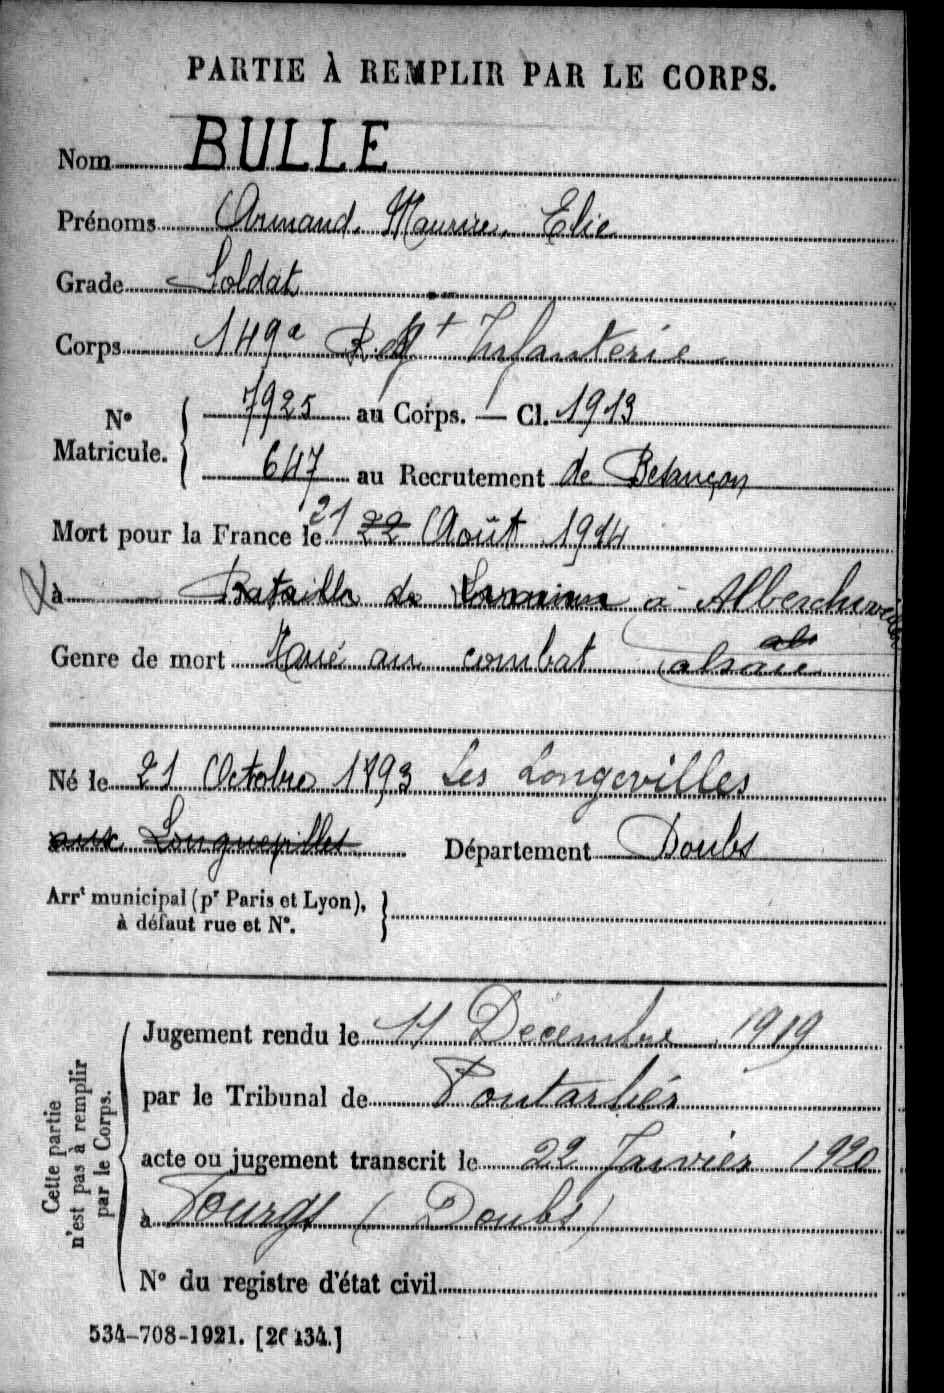 PARTIE À REMPLIR PAR LE CORPS.
Nom BULLE
Prénoms Armand, Maurice, Elie
Grade Soldat
Corps 149e Regt Infanterie
N° Matricule. { 7925 au Corps. — Cl. 1913
647 au Recrutement de Besançon
Mort pour la France le 21 22 Août 1914
à Bataille de à Alberchweiler
Genre de mort Tué au combat alsace
Né le 21 Octobre 1893 Les Longevilles
aux Longuevilles Département Doubs
Arrt municipal (pr Paris et Lyon),
à défaut rue et N°.
Cette partie
n'est pas à remplir
par le Corps.
Jugement rendu le 11 Décembre 1919
par le Tribunal de Pontarlier
acte ou jugement transcrit le 22 Janvier 1920
à (Doubs)
N° du registre d'état civil
534-708-1921. [26134.]